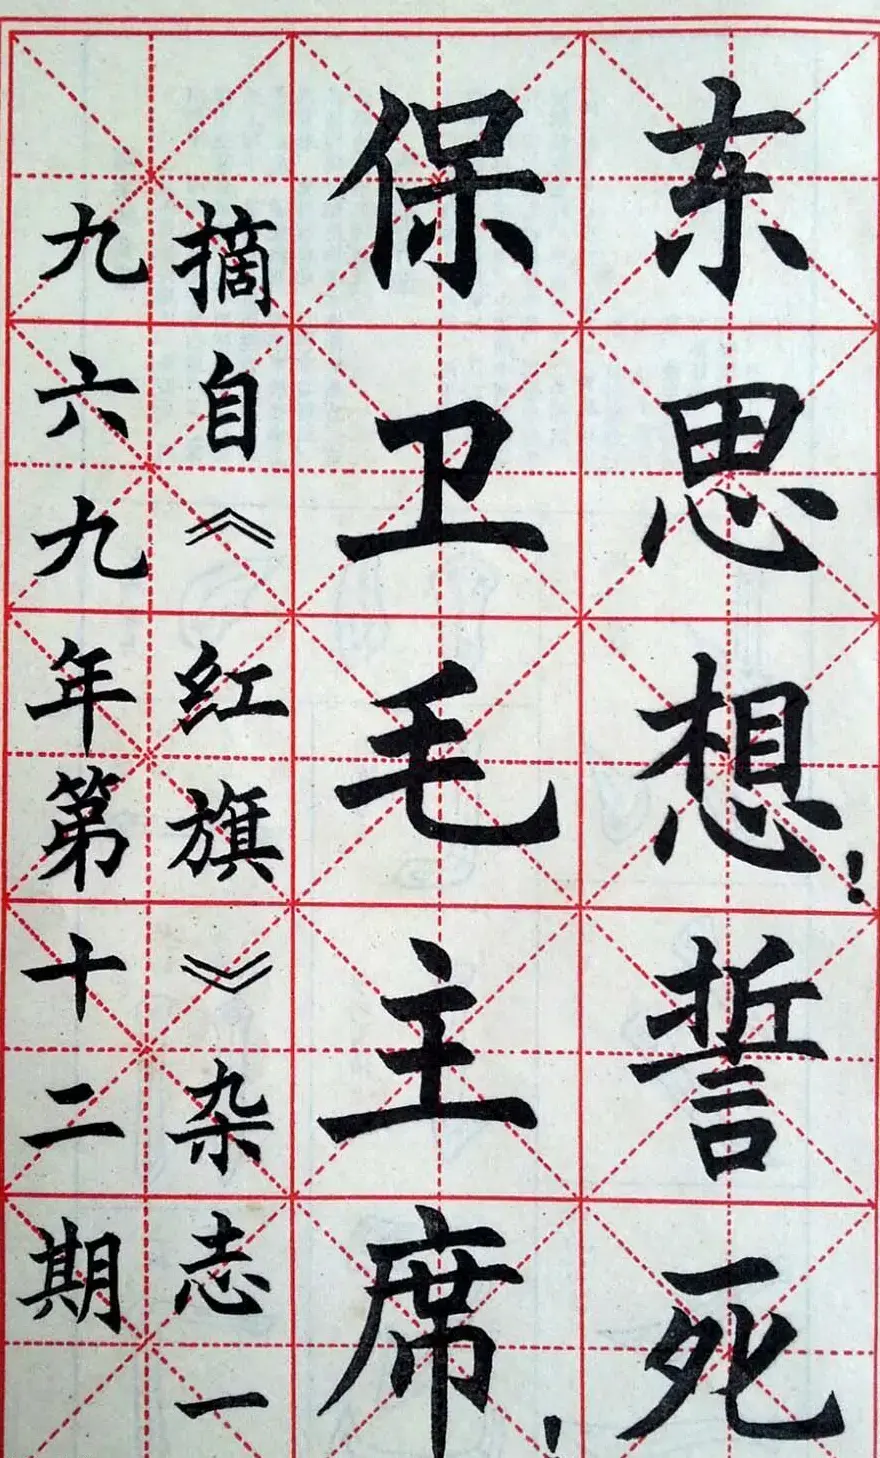 东思想！誓死
保卫毛主席！
摘自《红旗》杂志一
九六九年第十二期